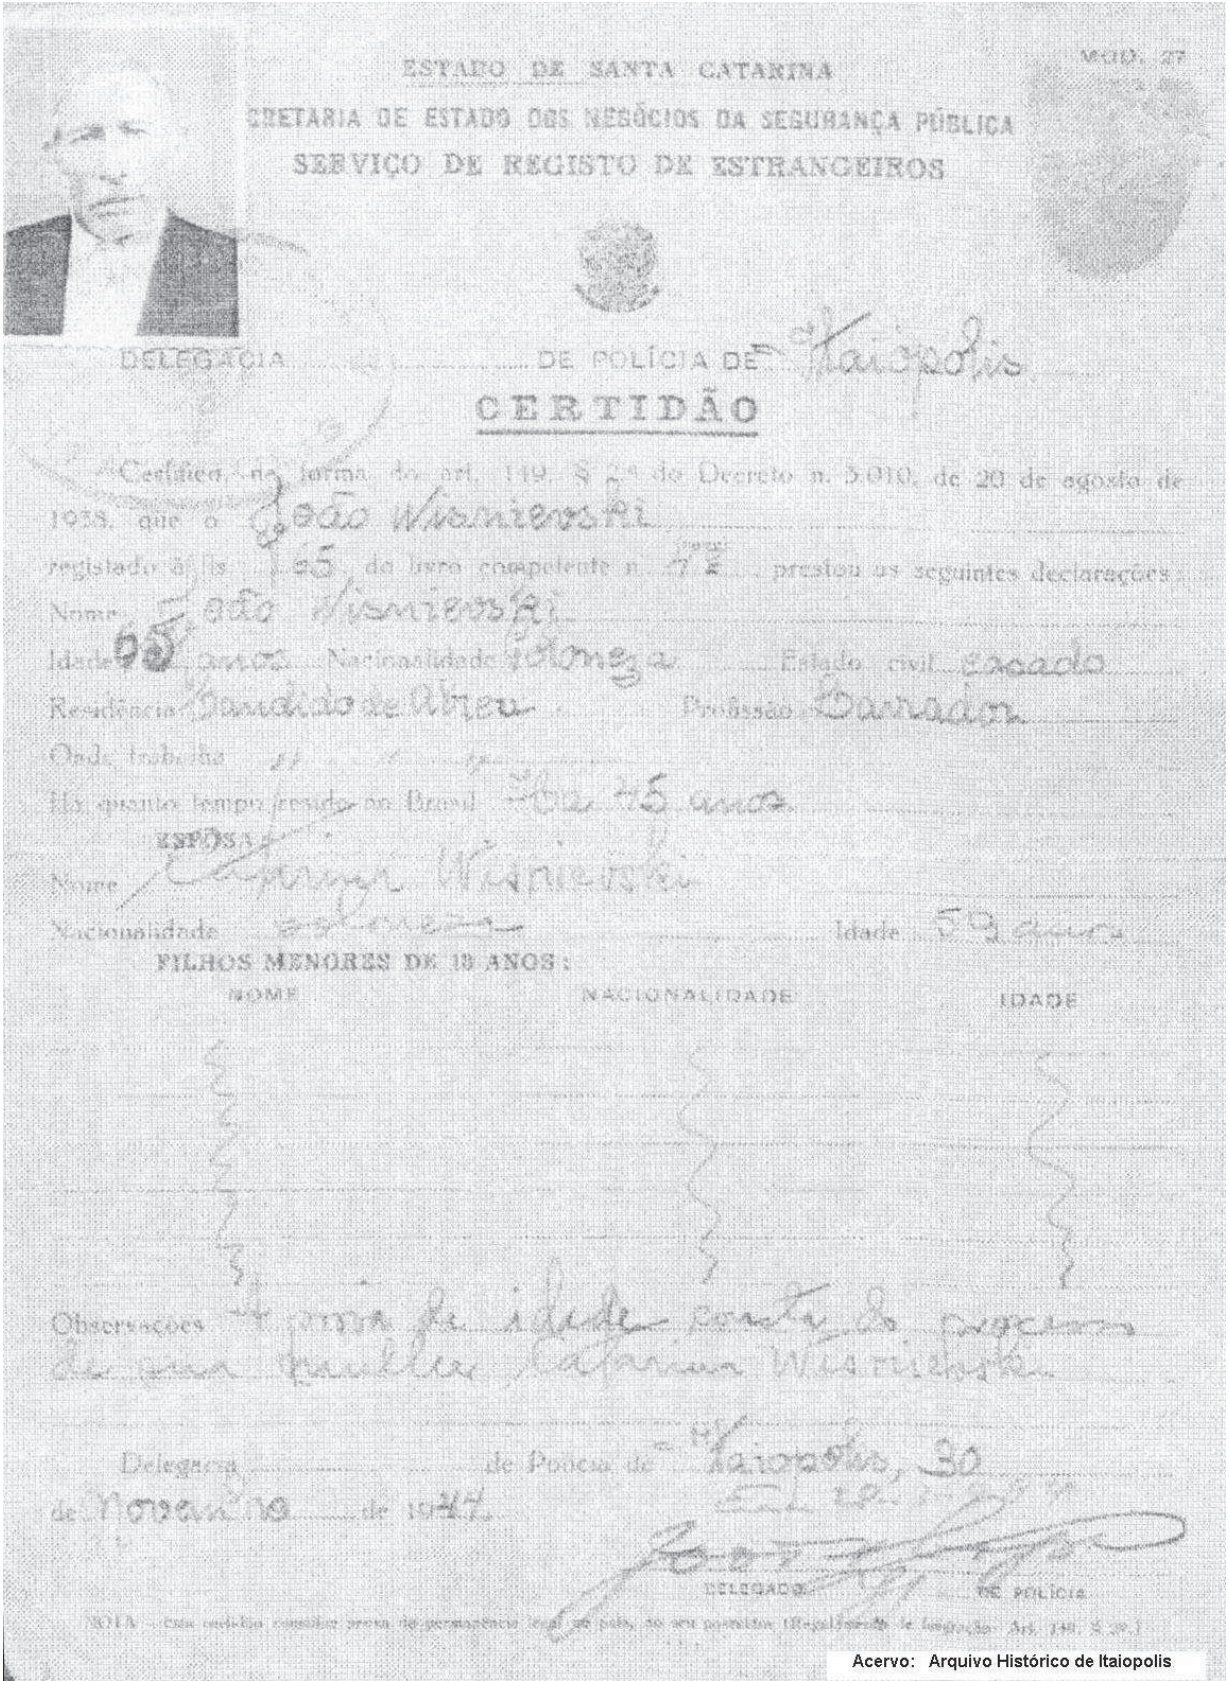 MOD. 27
ESTADO DE SANTA CATARINA
CRETARIA DE ESTADO DOS NEGÓCIOS DA SEGURANÇA PÚBLICA
SERVIÇO DE REGISTO DE ESTRANGEIROS
DELEGACIA DE POLÍCIA DE Itaiopolis
CERTIDÃO
Certifico, na forma do art. 149, § 2º do Decreto n. 3.010, de 20 de agosto de
1938, que o João Wisnievski
registado à fls. 65 do livro competente n. prestou as seguintes declarações:
Nome João Wisnievski
Idade 65 anos Nacionalidade Poloneza Estado civil casado
Residência Candido de Abreu Profissão Lavrador
Onde trabalha " " "
Ha quanto tempo reside no Brasil Ha 45 anos
ESPOSA:
Nome Wisnievski
Nacionalidade poloneza Idade 59 anos
FILHOS MENORES DE 18 ANOS:
NOME NACIONALIDADE IDADE
Observações A prova de idade consta do processo
de sua mulher Wisnievski
Delegacia de Polícia de Itaiopolis, 30
de Novembro de 1944
DELEGADO DE POLÍCIA
NOTA - Esta certidão constitue prova de permanência legal no país, do seu possuidor (Regulamento de Imigração- Art. 149, § 2º.)
Acervo: Arquivo Histórico de Itaiopolis